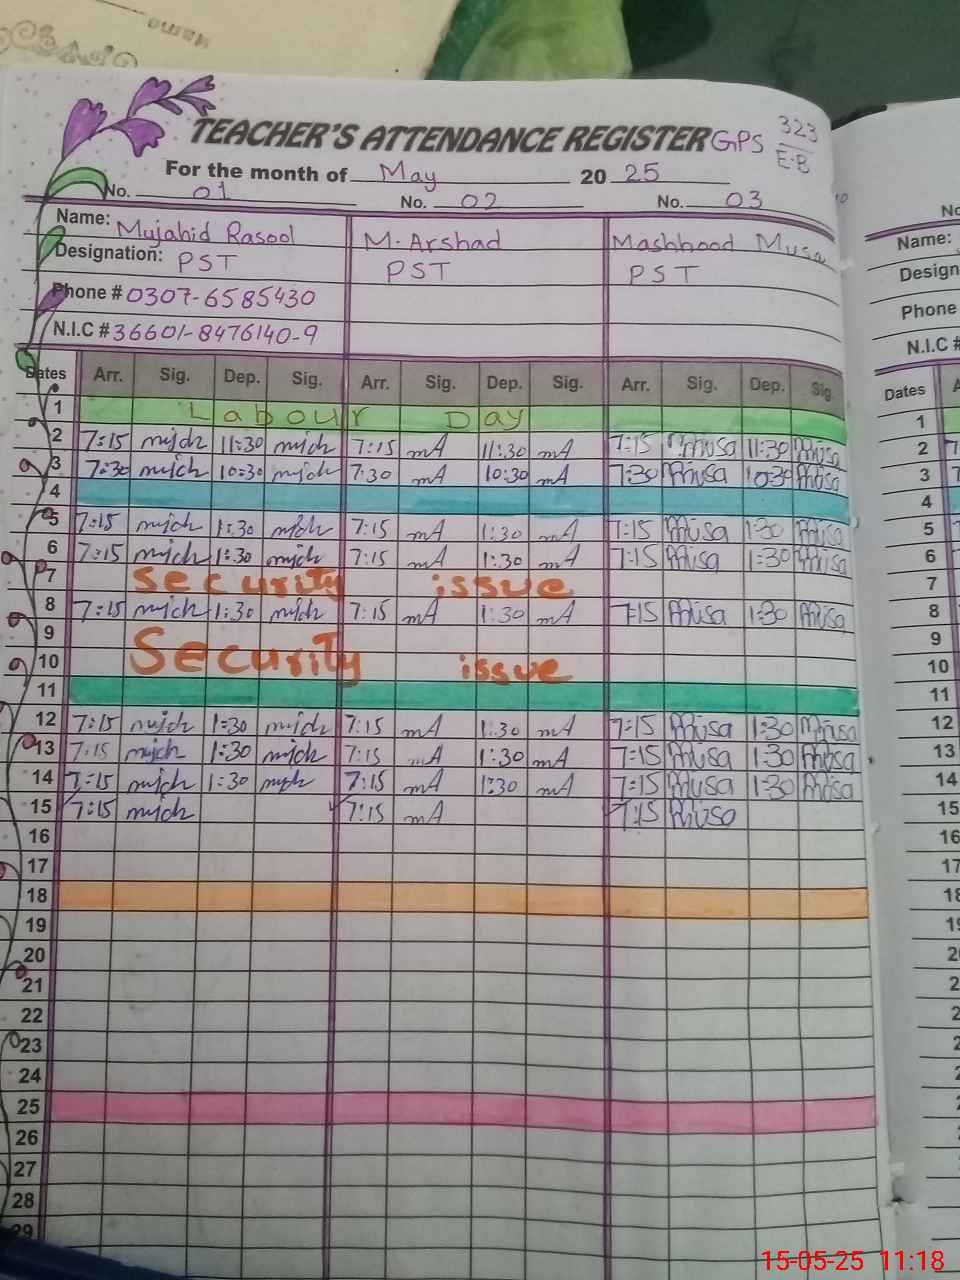 TEACHER'S ATTENDANCE REGISTER GPS 323/E-B
For the month of May 20 25
No. 01 No. 02 No. 03
Name: Mujahid Rasool M. Arshad Mashhood Musa
Designation: PST PST PST
Phone # 0307-6585430
N.I.C # 36601-8476140-9
Dates Arr. Sig. Dep. Sig. Arr. Sig. Dep. Sig. Arr. Sig. Dep. Sig.
1 Labour Day
2 7:15 11:30 7:15 mA 11:30 mA 7:15 Musa 11:30 Musa
3 7:30 10:30 7:30 mA 10:30 mA 7:30 Musa 10:30 Musa
4
5 7:15 1:30 7:15 mA 1:30 mA 7:15 Musa 1:30 Musa
6 7:15 1:30 7:15 mA 1:30 mA 7:15 Musa 1:30 Musa
7 Security issue
8 7:15 1:30 7:15 mA 1:30 mA 7:15 Musa 1:30 Musa
9 Security issue
10
11
12 7:15 1:30 7:15 mA 1:30 mA 7:15 Musa 1:30 Musa
13 7:15 1:30 7:15 mA 1:30 mA 7:15 Musa 1:30 Musa
14 7:15 1:30 7:15 mA 1:30 mA 7:15 Musa 1:30 Musa
15 7:15 7:15 mA 7:15 Musa
16
17
18
19
20
21
22
23
24
25
26
27
28
29
Name:
Phone
N.I.C #
Dates
1
2
3
4
5
6
7
8
9
10
11
12
13
14
15
15-05-25 11:18